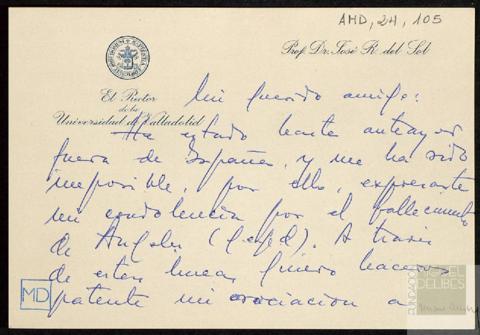 AMD, 24, 105
Prof. Dr. José R. del Sol
El Rector
de la
Universidad de Valladolid
Mi querido amigo:
He estado hasta anteayer
fuera de España, y me ha sido
imposible, por ello, expresarte
mi condolencia por el fallecimiento
de Angeles (q.e.p.d). A través
de estas lineas quiero haceros
patente mi asociación a
MD
FUNDACIÓN
MIGUEL
DELIBES